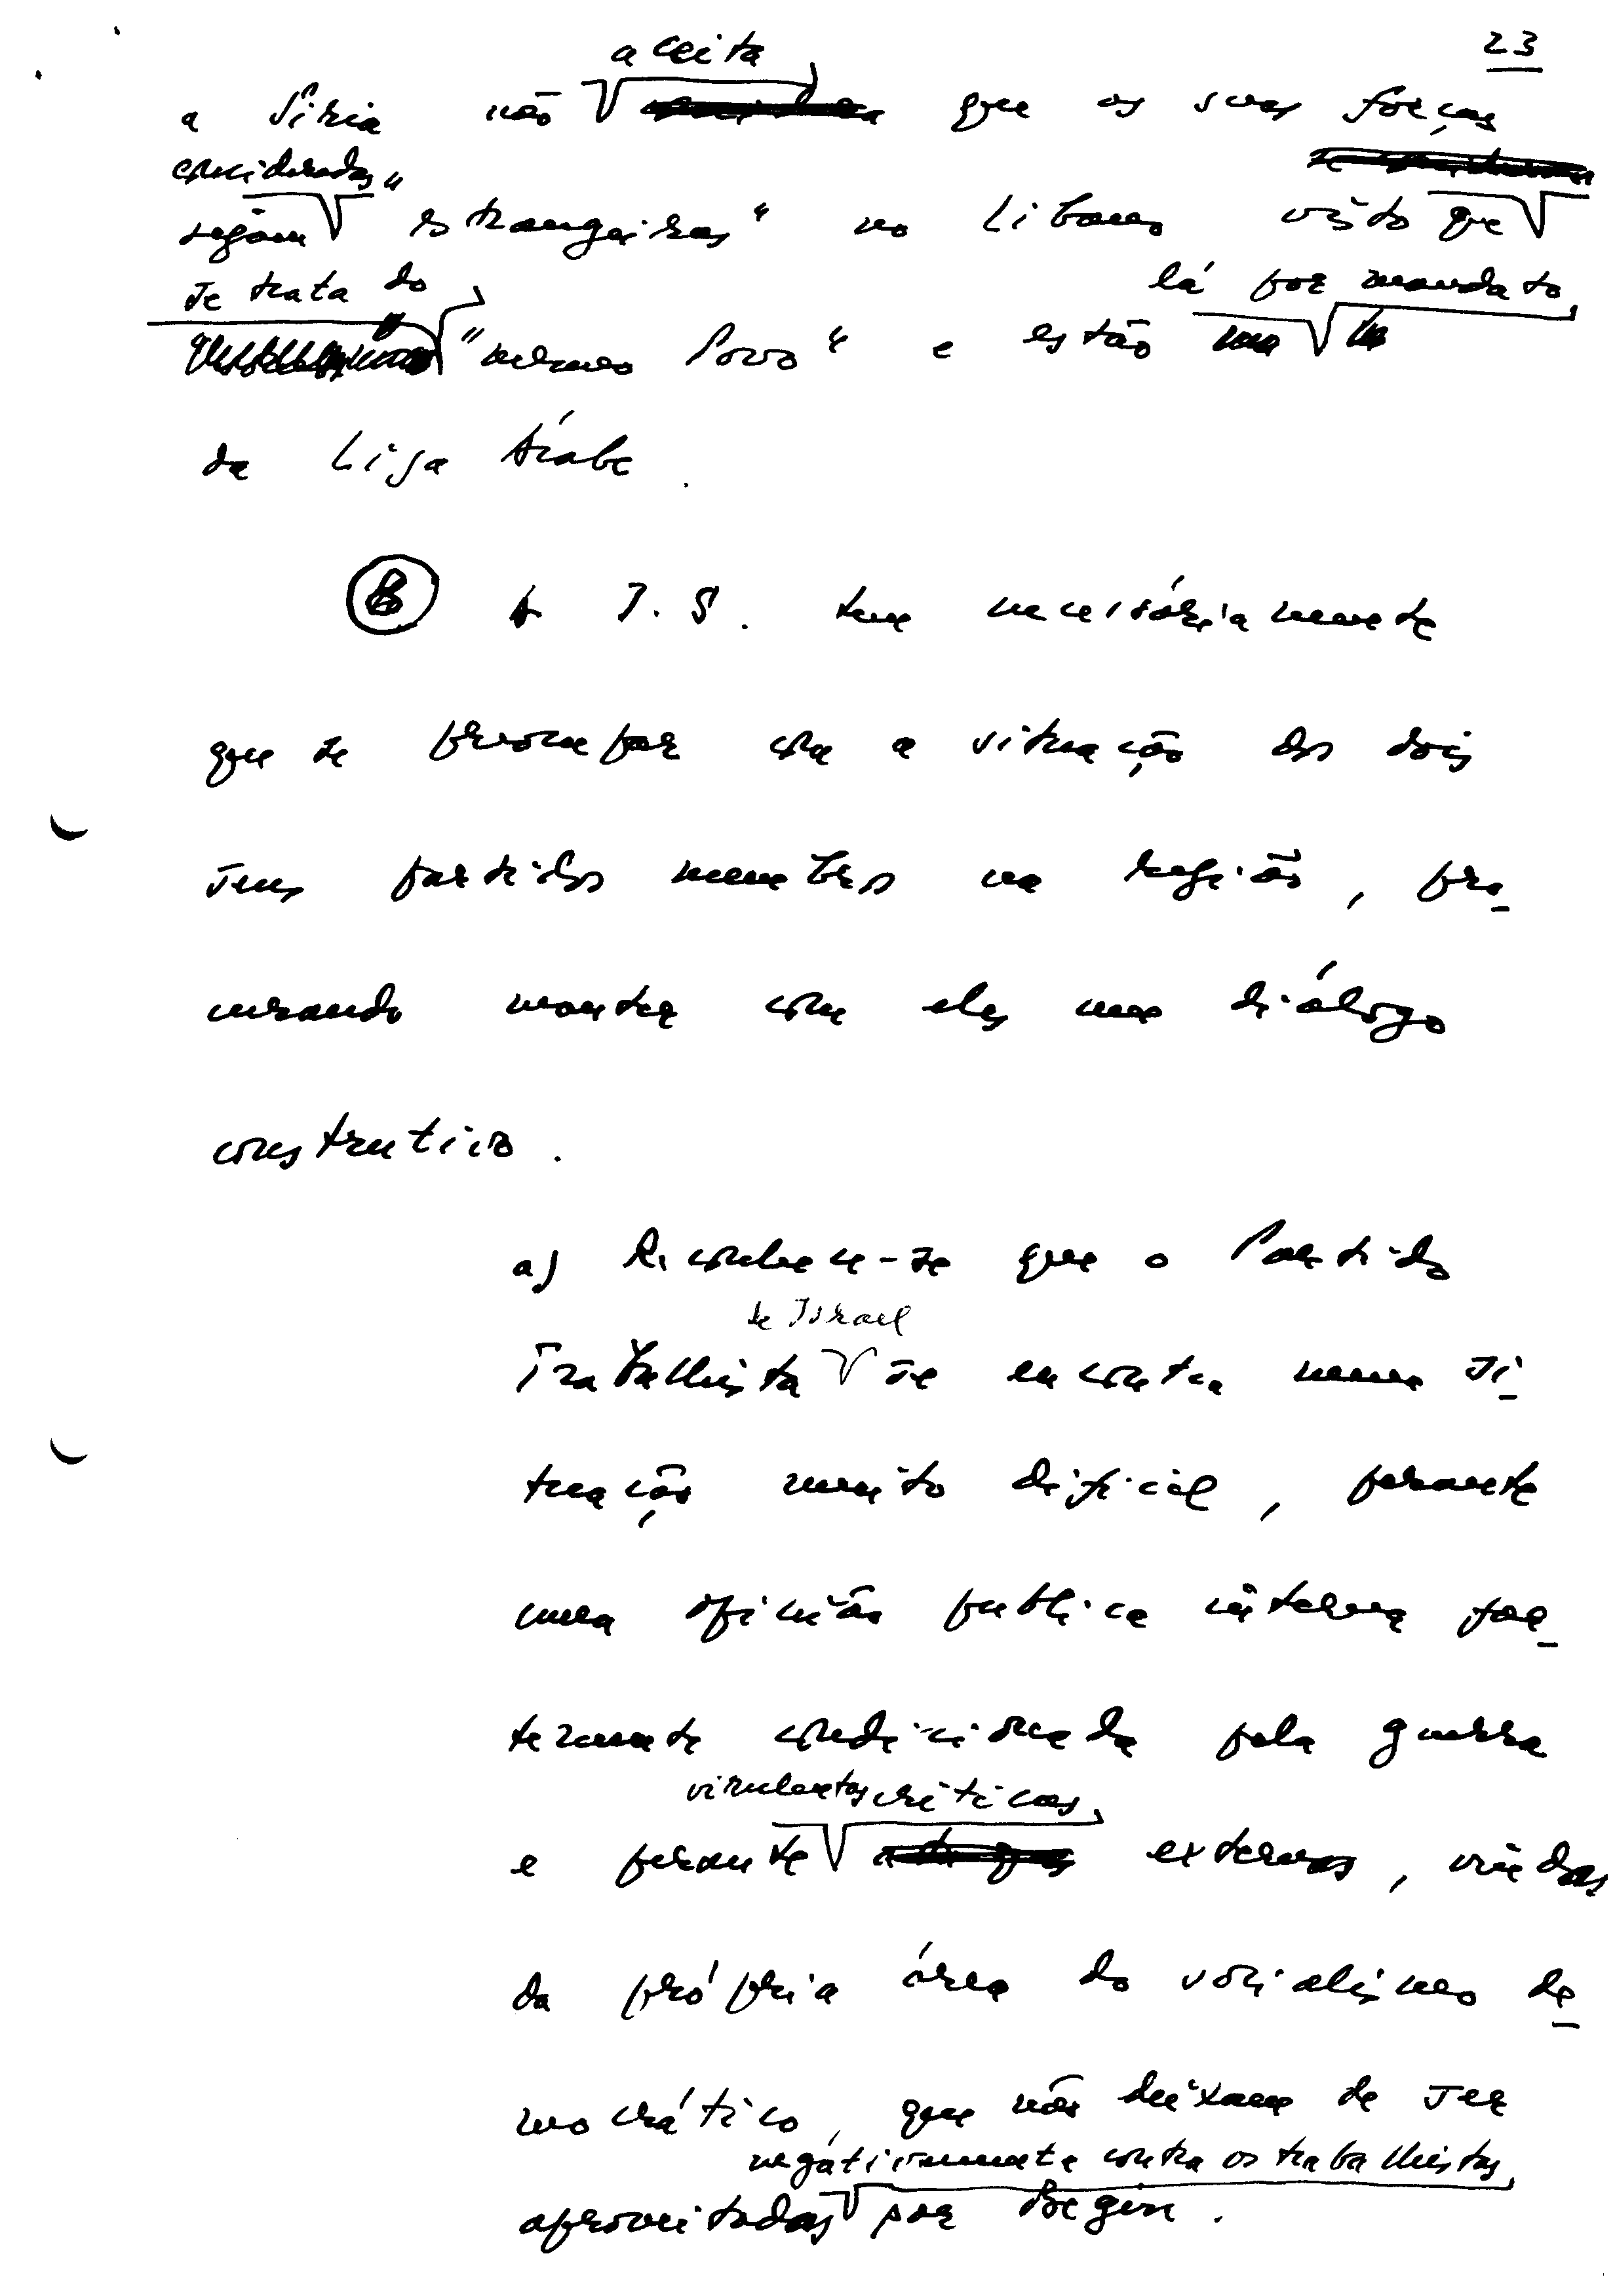 23
aceita
a Síria não que as suas forças
consideradas
sejam "estrangeiras" no Libano visto que
se trata do lá por mandato
"mesmo Povo" e estão
da Liga Árabe.
A I.S. tem necessáriamente
que se preocupar com a situação dos dois
seus partidos membros na região, pro-
curando manter com eles um diálogo
construtivo.
a) Reconhece-se que o Partido
de Israel
Trabalhista se encontra numa si-
tuação muito dificil, perante
uma opinião publica interna for-
temente condicionada pela guerra
virulentas críticas
e perante externas, vindas
da própria área do socialismo de-
mocrático, que não deixam de ser
negativamente contra os trabalhistas
aproveitadas por Begin.